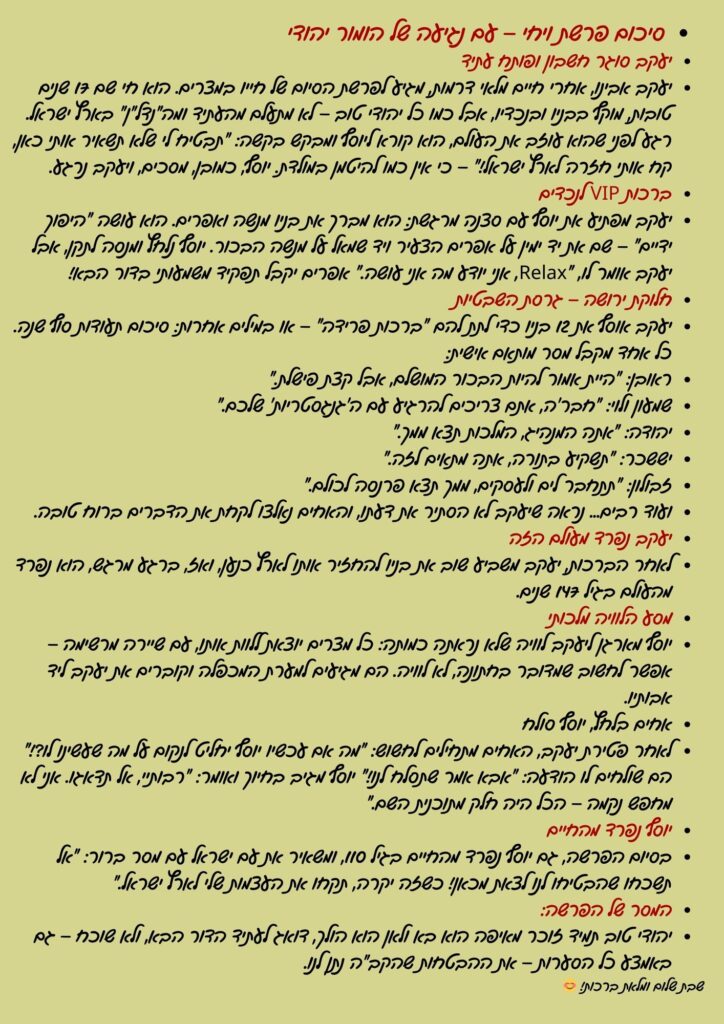 • סיכום פרשת ויחי – עם נגיעה של הומור יהודי
• יעקב סוגר חשבון ופותח עתיד
• יעקב אבינו, אחרי חיים מלאי דרמות, מגיע לפרשת הסיום של חייו במצרים. הוא חי שם 17 שנים
טובות, מוקף בבניו ובנכדיו, אבל כמו כל יהודי טוב – לא מתעלם מהעתיד ומה"נדל"ן" בארץ ישראל.
רגע לפני שהוא עוזב את העולם, הוא קורא ליוסף ומבקש בקשה: "תבטיח לי שלא תשאיר אותי כאן,
קח אותי חזרה לארץ ישראל!" – כי אין כמו להיטמן במולדת. יוסף, כמובן, מסכים, ויעקב נרגע.
• ברכות VIP לנכדים
• יעקב מפתיע את יוסף עם סצנה מרגשת: הוא מברך את בניו מנשה ואפרים. הוא עושה "היפוך
ידיים" – שם את יד ימין על אפרים הצעיר ויד שמאל על מנשה הבכור. יוסף נלחץ ומנסה לתקן, אבל
יעקב אומר לו, "Relax, אני יודע מה אני עושה." אפרים יקבל תפקיד משמעותי בדור הבא!
• חלוקת ירושה – גרסת השבטיות
• יעקב אוסף את 12 בניו כדי לתת להם "ברכות פרידה" – או במילים אחרות: סיכום תעודות סוף שנה.
כל אחד מקבל מסר מותאם אישית:
• ראובן: "היית אמור להיות הבכור המושלם, אבל קצת פישלת."
• שמעון ולוי: "חבר'ה, אתם צריכים להרגיע עם ה'גנגסטריות' שלכם."
• יהודה: "אתה המנהיג, המלכות תצא ממך."
• יששכר: "תשקיע בתורה, אתה מתאים לזה."
• זבולון: "תתחבר לים ולעסקים, ממך תצא פרנסה לכולם."
• ועוד רבים... נראה שיעקב לא הסתיר את דעתו, והאחים נאלצו לקחת את הדברים ברוח טובה.
• יעקב נפרד מעולם הזה
• לאחר הברכות, יעקב משביע שוב את בניו להחזיר אותו לארץ כנען, ואז, ברגע מרגש, הוא נפרד
מהעולם בגיל 147 שנים.
• מסע הלוויה מלכותי
• יוסף מארגן ליעקב לוויה שלא נראתה כמותה: כל מצרים יוצאת ללוות אותו, עם שיירה מרשימה –
אפשר לחשוב שמדובר בחתונה, לא לוויה. הם מגיעים למערת המכפלה וקוברים את יעקב ליד
אבותיו.
• אחים בלחץ, יוסף סולח
• לאחר פטירת יעקב, האחים מתחילים לחשוש: "מה אם עכשיו יוסף יחליט לנקום על מה שעשינו לו?!"
הם שולחים לו הודעה: "אבא אמר שתסלח לנו!" יוסף מגיב בחיוך ואומר: "רבותיי, אל תדאגו. אני לא
מחפש נקמה – הכל היה חלק מתוכנית השם."
• יוסף נפרד מהחיים
• בסיום הפרשה, גם יוסף נפרד מהחיים בגיל 110, ומשאיר את עם ישראל עם מסר ברור: "אל
תשכחו שהבטיחו לנו לצאת מכאן! כשזה יקרה, תקחו את העצמות שלי לארץ ישראל."
• המסר של הפרשה:
• יהודי טוב תמיד זוכר מאיפה הוא בא ולאן הוא הולך, דואג לעתיד הדור הבא, ולא שוכח – גם
באמצע כל הסערות – את ההבטחות שהקב"ה נתן לנו.
שבת שלום ומלאת ברכות! 😊